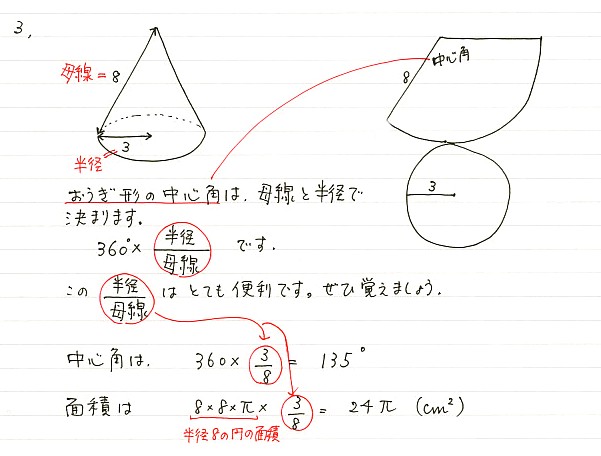 3,
母線 = 8
3
半径
8
中心角
3
おうぎ形の中心角は、母線と半径で
決まります。
360°× 半径/母線 です.
この 半径/母線 はとても便利です。ぜひ覚えましょう.
中心角は. 360 × 3/8 = 135°
面積は 8×8×π × 3/8 = 24π (cm²)
半径8の円の面積